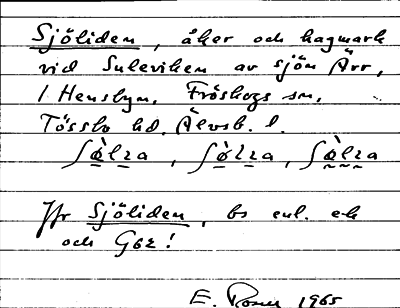 Sjöliden, åker och hagmark
vid Suleviken av sjön Ärr,
/ Hensbyn. Fröskogs sn,
Tössbo hd, Älvsb. l.
Jfr Sjöliden, bs enl. ek
och Gbz!
E. Rosén 1965